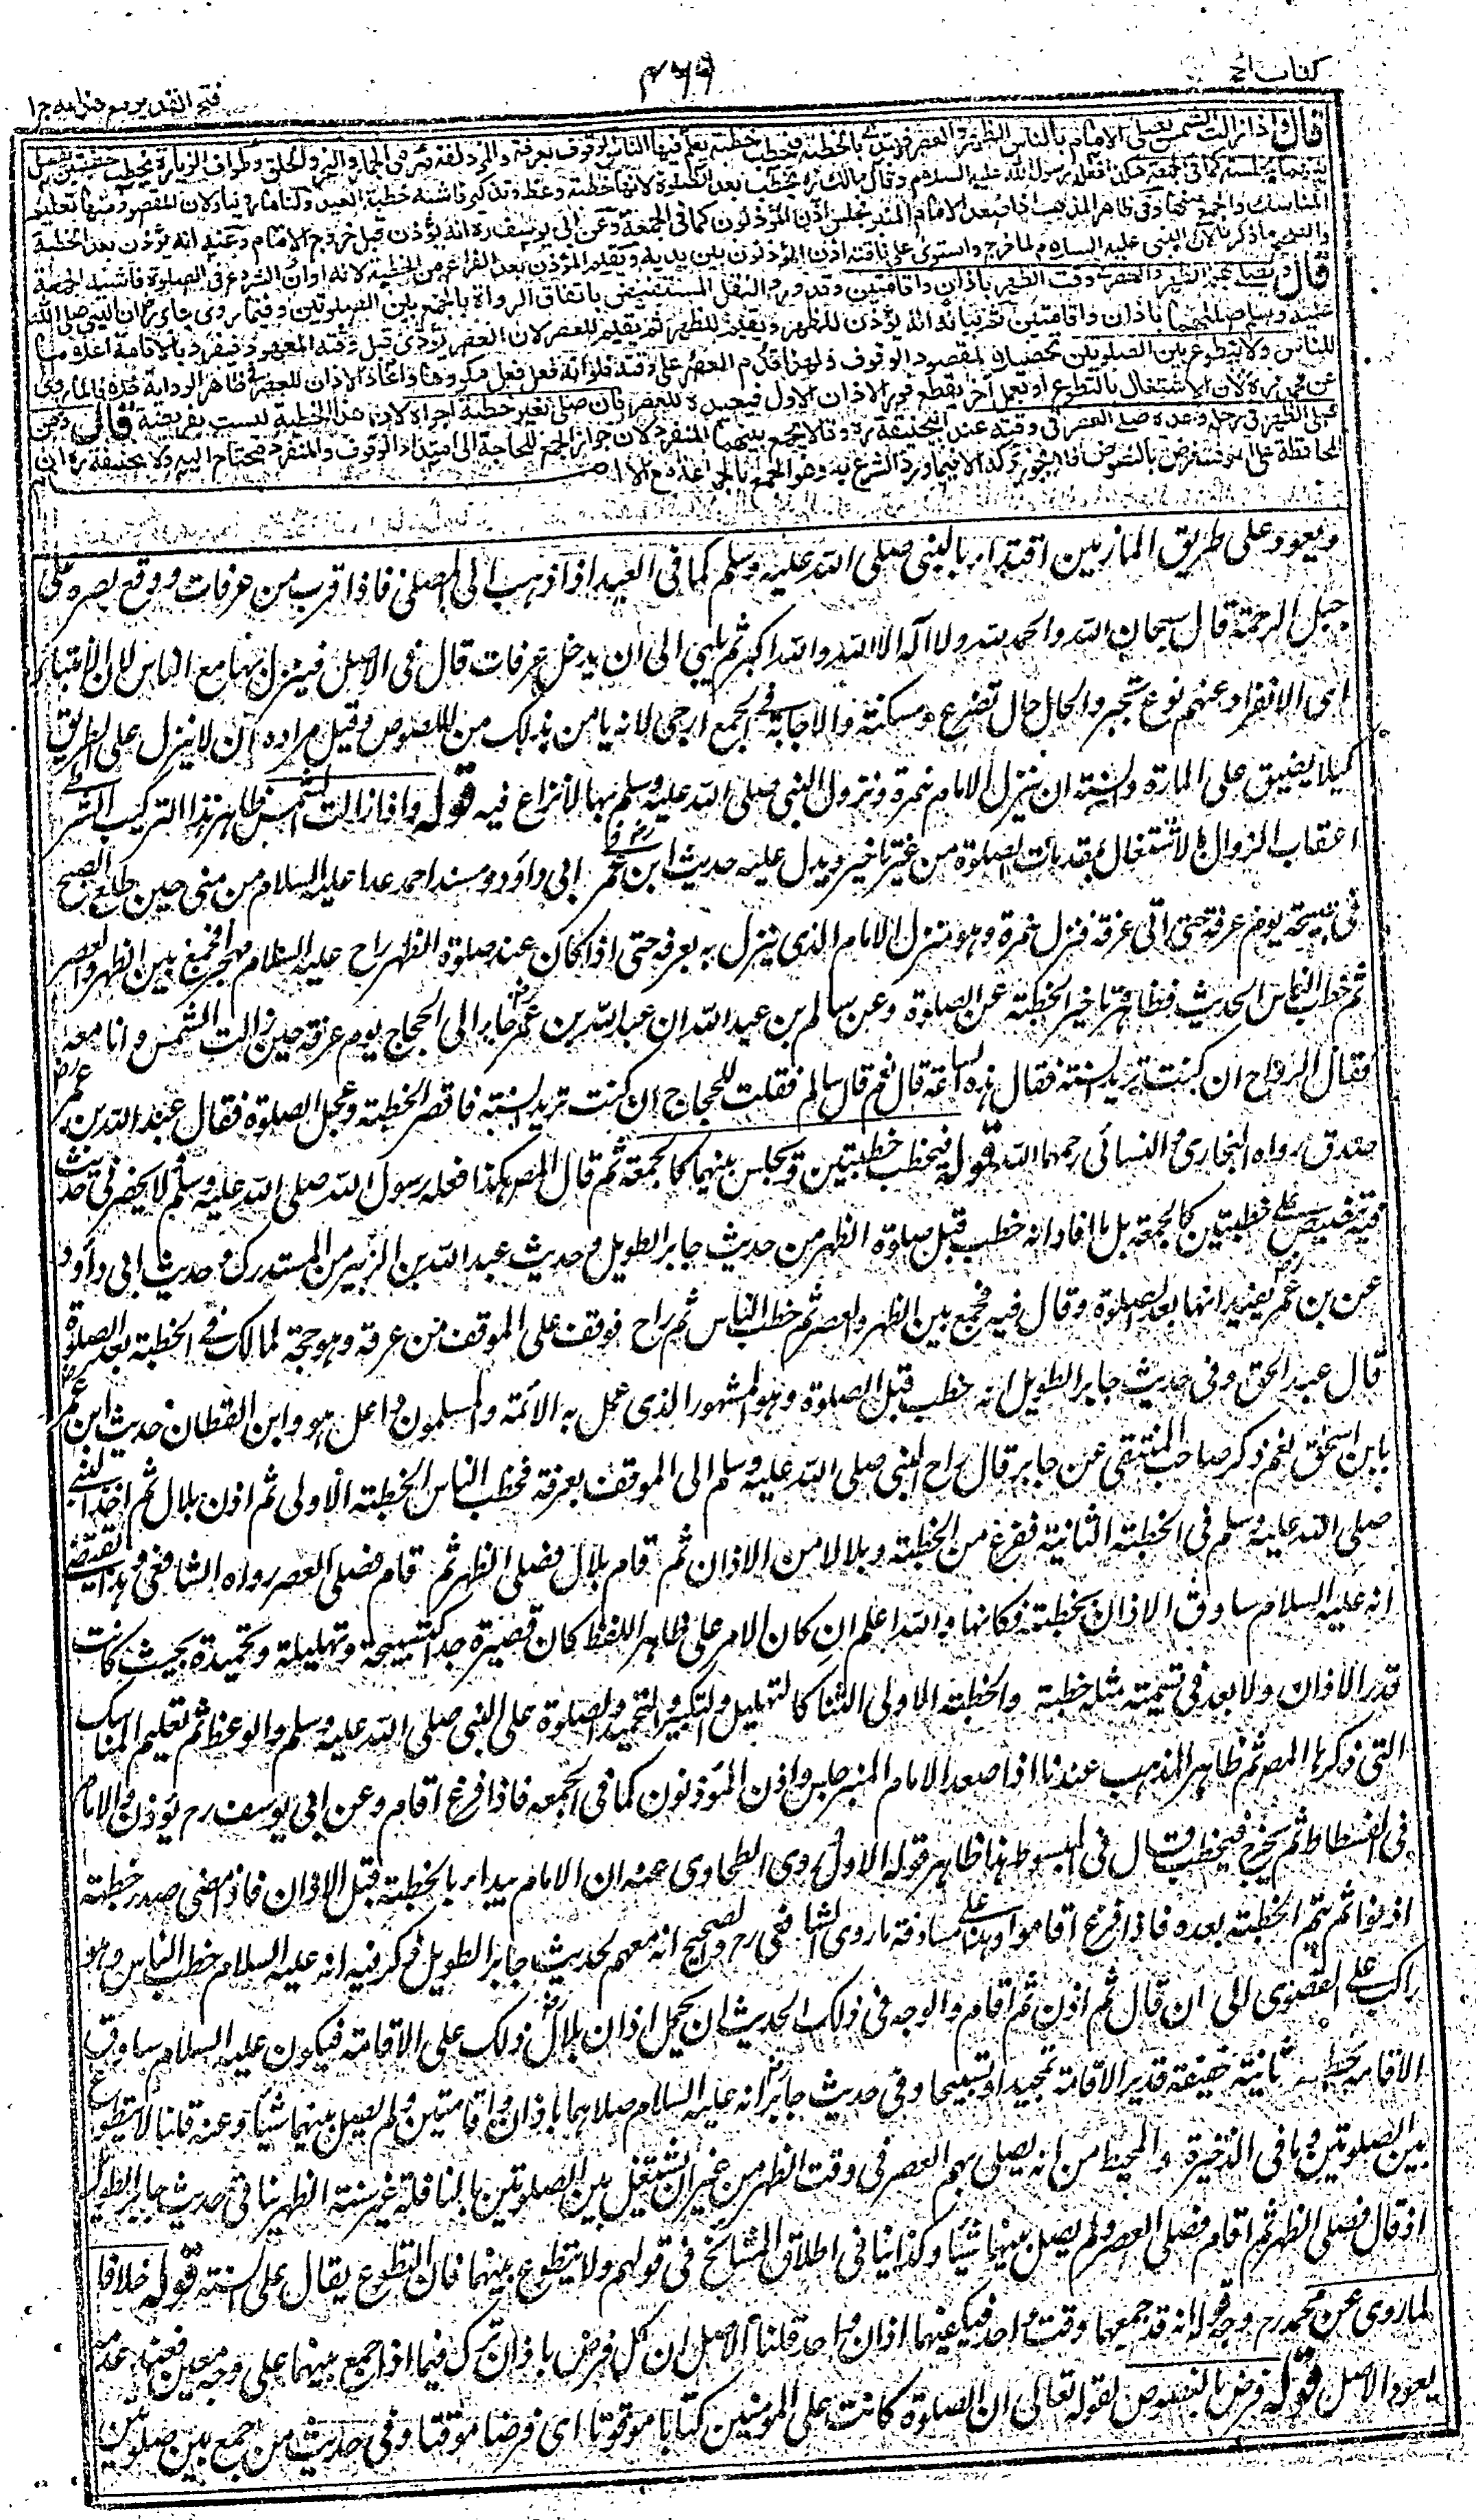 كتاب الحج
٤٦٩
فتح القدير مع هدايه ج١
قال واذا زالت الشمس يصلي الامام بالناس الظهر والعصر فيبتدئ بالخطبة فيخطب خطبة يعلم فيها الناس الوقوف بعرفة والمزدلفة ورمي الجمار والنحر والحلق وطواف الزيارة يخطب خطبتين يفصل
بينهما بجلسة كما في الجمعة هكذا فعله رسول الله عليه السلام وقال مالك ره يخطب بعد الصلوة لانها خطبة وعظ وتذكير فاشبه خطبة العيد ولنا ما روينا ولان المقصود منها تعليم
المناسك والجمع منها وفي ظاهر المذهب اذا صعد الامام المنبر فجلس اذن المؤذنون كما في الجمعة وعن ابي يوسف ره انه يؤذن قبل خروج الامام وعنه انه يؤذن بعد الخطبة
والصحيح ما ذكرنا لان النبي عليه السلام لما خرج واستوى على ناقته اذن المؤذنون بين يديه ويقيم المؤذن بعد الفراغ من الخطبة لانه اوان الشروع في الصلوة فاشبه الجمعة
قال ويصلي بهم الظهر والعصر في وقت الظهر باذان واقامتين وقد ورد النقل المستفيض باتفاق الرواة بالجمع بين الصلوتين وفيما روى جابر ره ان النبي صلى الله
عليه وسلم صلاهما باذان واقامتين ثم بيانه انه يؤذن للظهر ويقيم للظهر ثم يقيم للعصر لان العصر يؤدى قبل وقته المعهود فيفرد بالاقامة اعلاما
للناس ولا يتطوع بين الصلوتين تحصيلا لمقصود الوقوف ولهذا قدم العصر على وقته فلو انه فعل فعل مكروها واعاد الاذان للعصر في ظاهر الرواية خلافا لما روي
عن محمد ره لان الاشتغال بالتطوع او بعمل آخر يقطع فور الاذان الاول فيعيده للعصر فان صلى بغير خطبة اجزاه لان هذه الخطبة ليست بفريضة قال ومن
صلى الظهر في رحله وحده صلى العصر في وقته عند ابيحنيفة ره وقالا يجمع بينهما المنفرد لان جواز الجمع للحاجة الى امتداد الوقوف والمنفرد محتاج اليه ولابيحنيفة ره ان
المحافظة على الوقت فرض بالنصوص فلا يجوز تركه الا فيما ورد الشرع به وهو الجمع بالجماعة مع الامام
ويعود على طريق المازمين اقتداء بالنبي صلى الله عليه وسلم كما في العيد اذا ذهب الى المصلى فاذا قرب من عرفات ووقع بصره على
جبل الرحمة قال سبحان الله والحمد لله ولا اله الا الله والله اكبر ثم يلبي الى ان يدخل عرفات قال في الاصل فينزل بها مع الناس لان الانتباذ
اى الانفراد عنهم نوع تجبر والحال حال تضرع ومسكنة والاجابة في الجمع ارجى لانه يامن بذلك من اللصوص وقيل مراده ان لا ينزل على الطريق
كيلا يضيق على المارة والسنة ان ينزل الامام بنمرة ونزول النبي صلى الله عليه وسلم بها لا نزاع فيه قوله واذا زالت الشمس ظاهر هذا التركيب الشرطي
اعقاب الزوال بالاشتغال بمقدمات الصلوة من غير تاخير ويدل عليه حديث ابن عمر في ابي داؤد ومسند احمد غدا عليه السلام من منى حين طلع الصبح
في صبيحة يوم عرفة حتى اتى عرفة فنزل نمرة وهو منزل الامام الذي ينزل به بعرفة حتى اذا كان عند صلوة الظهر راح عليه السلام مهجرا فجمع بين الظهر والعصر
ثم خطب الناس الحديث فظاهره تاخير الخطبة عن الصلوة وعن سالم بن عبد الله ان عبد الله بن عمر رض جاء الى الحجاج يوم عرفة حين زالت الشمس وانا معه
فقال الرواح ان كنت تريد السنة فقال هذه الساعة قال نعم قال سالم فقلت للحجاج ان كنت تريد السنة فاقصر الخطبة وعجل الصلوة فقال عبد الله بن عمر رض
صدق رواه البخاري والنسائي رحمهما الله قوله فيخطب خطبتين ويجلس بينهما كالجمعة ثم قال المص هكذا فعله رسول الله صلى الله عليه وسلم لا يحضرني حديث
فيه تنصيص على خطبتين كالجمعة بل ما افاد انه خطب قبل صلوة الظهر من حديث جابر الطويل وحديث عبد الله بن الزبير من المستدرك وحديث ابي داؤد
عن بن عمر رض يفيد انها بعد الصلوة وقال فيه فجمع بين الظهر والعصر ثم خطب الناس ثم راح فوقف على الموقف من عرفة وهو حجة لمالك في الخطبة بعد الصلوة
قال عبد الحق وفي حديث جابر الطويل انه خطب قبل الصلوة وهو المشهور الذي عمل به الائمة والمسلمون واعل هو وابن القطان حديث ابن عمر رض
بابن اسحق نعم ذكر صاحب المنتقى عن جابر قال راح النبي صلى الله عليه وسلم الى الموقف بعرفة فخطب الناس الخطبة الأولى ثم اذن بلال ثم اخذ النبي
صلى الله عليه وسلم في الخطبة الثانية ففرغ من الخطبة وبلال من الاذان ثم اقام بلال فصلى الظهر ثم اقام فصلى العصر رواه الشافعي وهذا يقتضي
انه عليه السلام ساوق الاذان بخطبته فكانها والله اعلم ان كان الامر على ظاهر اللفظ كان قصيرة جدا كتسبيحة وتهليلة وتحميدة بحيث كانت
قدر الاذان ولا بعد في تسمية مثله خطبة والخطبة الاولى الثنا كالتهليل والتكبير والتحميد والصلوة على النبي صلى الله عليه وسلم والوعظ ثم تعليم المناسك
التي ذكرها المص ثم ظاهر المذهب عندنا اذا صعد الامام المنبر جلس واذن المؤذنون كما في الجمعه فاذا فرغ اقام وعن ابي يوسف رح يؤذن والامام
في الفسطاط ثم يخرج فيخطب قال في المبسوط هذا ظاهر قوله الاول وروى الطحاوى عنه ان الامام يبداء بالخطبة قبل الاذان فاذا مضى صدر خطبته
اذنوا ثم يتم الخطبة بعده فاذا فرغ اقاموا وهذا على مساوقة ما روى الشافعي رح والصحيح انه معهم لحديث جابر الطويل ذكر فيه انه عليه السلام خطب الناس وهو
راكب على القصوى الى ان قال ثم اذن ثم اقام والوجه في ذلك الحديث ان يحمل اذان بلال رض ذلك على الاقامة فيكون عليه السلام ساوق
الاقامة بخطبة ثانية خفيفة قدير الاقامة تمجيدا وتسبيحا وفي حديث جابر رض انه عليه السلام صلاهما باذان واقامتين ولم يصل بينهما شيأ وعنه قلنا لا يتطوع
بين الصلوتين وما في الذخيرة والمحيط من انه يصلى بهم العصر في وقت الظهر من غير ان يشتغل بين الصلوتين بالنافلة غير سنة الظهر ينافي حديث جابر الطويل
اذ قال فصلى الظهر ثم اقام فصلى العصر ولم يصل بينهما شيأ وكذا ينافي اطلاق المشايخ في قولهم ولا يتطوع بينهما فان التطوع يقال على السنة قوله خلافا
لما روى عن محمد رح وجه قوله انه قد جمعهما وقت واحد فيكفيهما اذان واحد قلنا الاصل ان كل فرض باذان ترك فيما اذا جمع بينهما على وجه معين فعند عدمه
يعود الاصل قوله فرض بالنصوص لقوله تعالى ان الصلوة كانت على المؤمنين كتابا موقوتا اى فرضا موقتا وفي حديث من جمع بين صلوتين